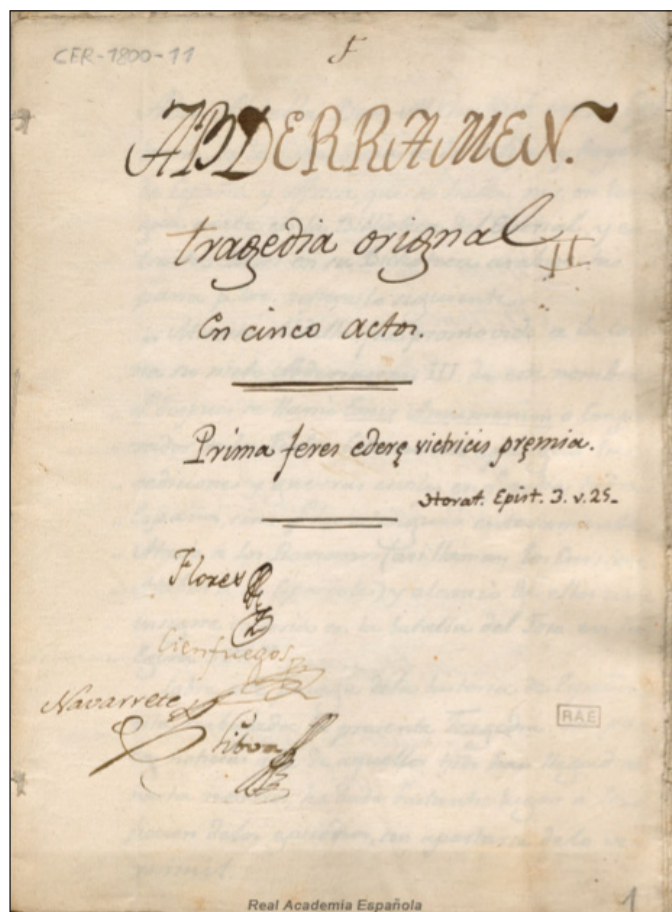 CER-1800-11
ABDERRAMEN.
tragedia orignal
II
En cinco actos.
Prima feres ederę victricis pręmia.
Horat. Epist. 3. v. 25.
Florez
Cienfuegos
Navarrete
RAE
Real Academia Española
1